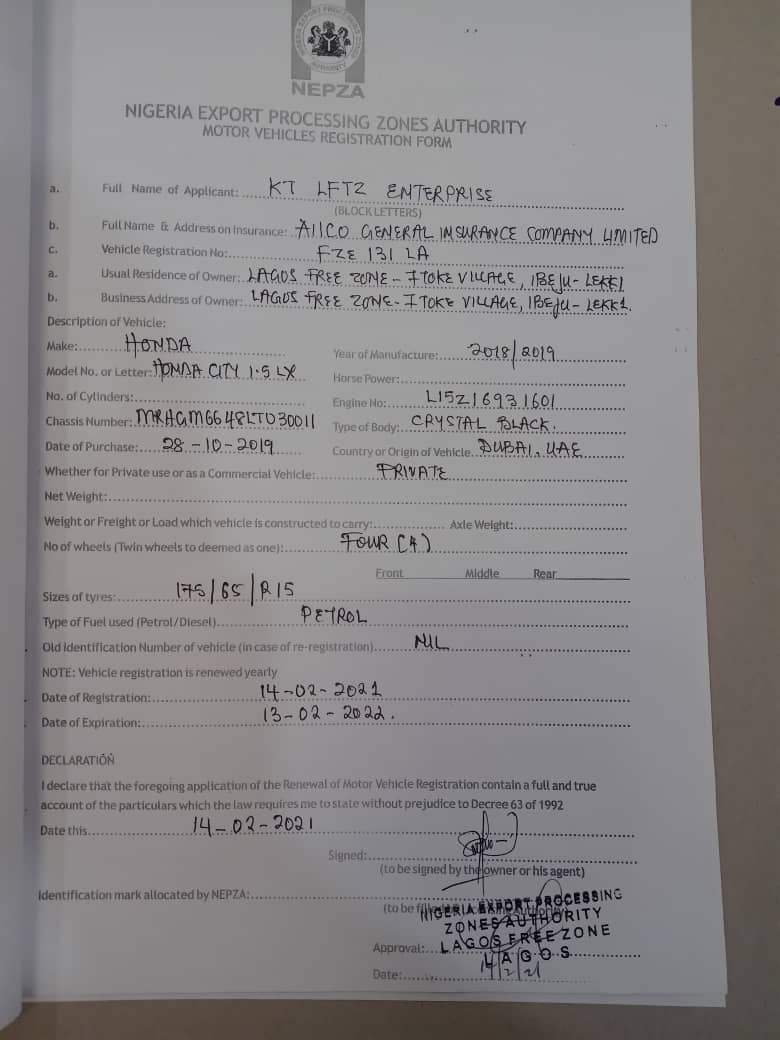 NEPZA
NIGERIA EXPORT PROCESSING ZONES AUTHORITY
MOTOR VEHICLES REGISTRATION FORM
a. Full Name of Applicant: KT LFTZ ENTERPRISE
(BLOCK LETTERS)
b. Full Name & Address on Insurance: AIICO GENERAL INSURANCE COMPANY LIMITED
c. Vehicle Registration No: FZE 131 LA
a. Usual Residence of Owner: LAGOS FREE ZONE - ITOKE VILLAGE, IBEJU - LEKKI
b. Business Address of Owner: LAGOS FREE ZONE - ITOKE VILLAGE, IBEJU - LEKKI.
Description of Vehicle:
Make: HONDA Year of Manufacture: 2018/2019
Model No. or Letter: HONDA CITY 1.5 LX Horse Power:
No. of Cylinders: Engine No: L15Z16931601
Chassis Number: MRHGM6648LT030011 Type of Body: CRYSTAL BLACK.
Date of Purchase: 28-10-2019 Country or Origin of Vehicle. DUBAI, UAE
Whether for Private use or as a Commercial Vehicle: PRIVATE
Net Weight:
Weight or Freight or Load which vehicle is constructed to carry: Axle Weight:
No of wheels (Twin wheels to deemed as one): FOUR (4)
Front Middle Rear
Sizes of tyres: 175/65/R15
Type of Fuel used (Petrol/Diesel) PETROL
Old Identification Number of vehicle (in case of re-registration) NIL
NOTE: Vehicle registration is renewed yearly
Date of Registration: 14-02-2021
Date of Expiration: 13-02-2022.
DECLARATION
I declare that the foregoing application of the Renewal of Motor Vehicle Registration contain a full and true
account of the particulars which the law requires me to state without prejudice to Decree 63 of 1992
Date this 14-02-2021
Signed:
(to be signed by the owner or his agent)
Identification mark allocated by NEPZA:
(to be
NIGERIA EXPORT PROCESSING
ZONES AUTHORITY
Approval: LAGOS FREE ZONE
LAGOS
Date: 14/2/21